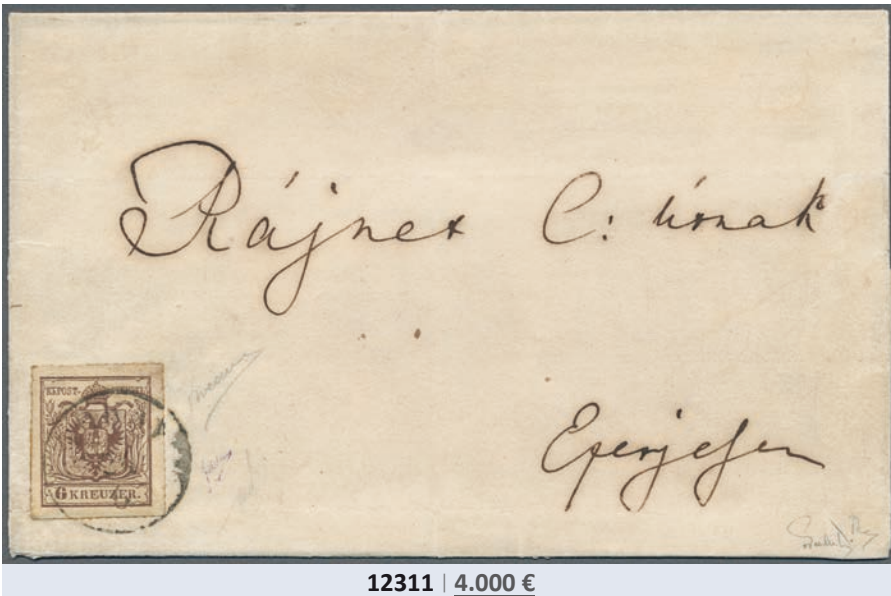 Rájner C: úrnak
Eperjesen
KKPOST-
6 KREUZER.
12311 | 4.000 €